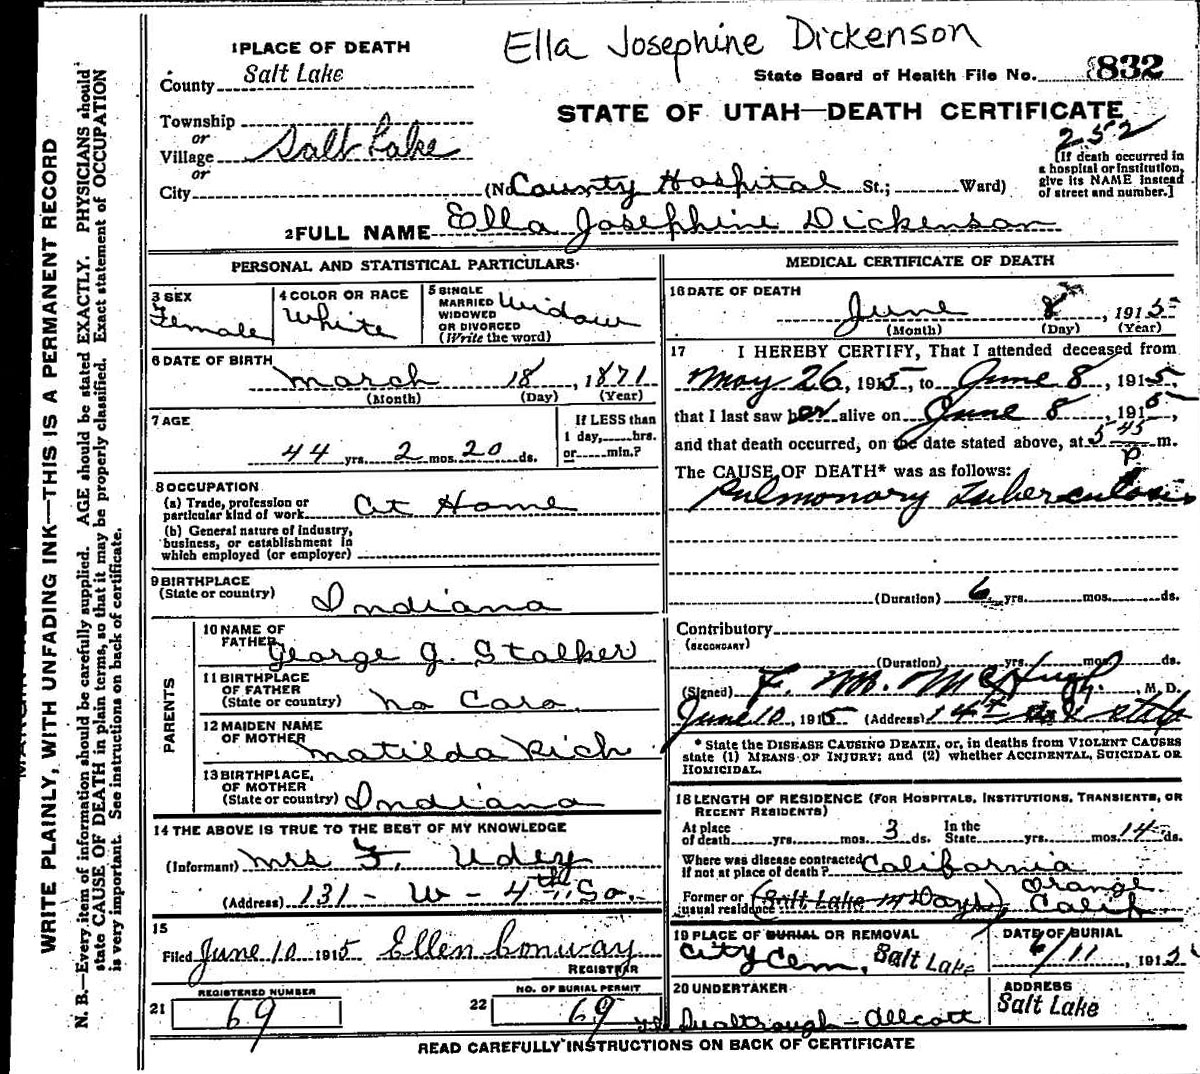 Ella Josephine Dickenson
1 PLACE OF DEATH
County Salt Lake
State Board of Health File No. 832
STATE OF UTAH—DEATH CERTIFICATE
252
Township
or
Village Salt Lake
or
City (No. County Hospital St.; Ward)
[If death occurred in
a hospital or institution,
give its NAME instead
of street and number.]
2 FULL NAME Ella Josephine Dickenson
PERSONAL AND STATISTICAL PARTICULARS
3 SEX
Female
4 COLOR OR RACE
White
5 SINGLE
MARRIED
WIDOWED
OR DIVORCED
(Write the word)
Widow
6 DATE OF BIRTH
March 18, 1871
(Month) (Day) (Year)
7 AGE
44 yrs. 2 mos. 20 ds.
If LESS than
1 day, hrs.
or min.?
8 OCCUPATION
(a) Trade, profession or
particular kind of work At Home
(b) General nature of industry,
business, or establishment in
which employed (or employer)
9 BIRTHPLACE
(State or country) Indiana
PARENTS
10 NAME OF
FATHER George J. Stalker
11 BIRTHPLACE
OF FATHER
(State or country) No Caro.
12 MAIDEN NAME
OF MOTHER Matilda Rich
13 BIRTHPLACE
OF MOTHER
(State or country) Indiana
14 THE ABOVE IS TRUE TO THE BEST OF MY KNOWLEDGE
(Informant) Mrs F. Udey
(Address) 131 - W - 4th So.
15
Filed June 10 1915 Ellen Conway
REGISTRAR
21 REGISTERED NUMBER
69
22 NO. OF BURIAL PERMIT
69
MEDICAL CERTIFICATE OF DEATH
16 DATE OF DEATH
June 8, 1915
(Month) (Day) (Year)
17 I HEREBY CERTIFY, That I attended deceased from
May 26, 1915, to June 8, 1915,
that I last saw her alive on June 8, 1915,
and that death occurred, on the date stated above, at 5 45 P m.
The CAUSE OF DEATH* was as follows:
Pulmonary Tuberculosis
(Duration) 6 yrs. mos. ds.
Contributory
(SECONDARY)
(Duration) yrs. mos. ds.
(Signed) F. M. McHugh, M. D.
June 10, 1915 (Address) 14th
* State the DISEASE CAUSING DEATH, or, in deaths from VIOLENT CAUSES
state (1) MEANS OF INJURY; and (2) whether ACCIDENTAL, SUICIDAL OR
HOMICIDAL.
18 LENGTH OF RESIDENCE (FOR HOSPITALS, INSTITUTIONS, TRANSIENTS, OR
RECENT RESIDENTS)
At place
of death yrs. mos. 3 ds. In the
State yrs. mos. 14 ds.
Where was disease contracted
if not at place of death? California
Former or
usual residence (Salt Lake 14 Days) Orange
Calif
19 PLACE OF BURIAL OR REMOVAL
City Cem, Salt Lake
DATE OF BURIAL
6/11, 1915
20 UNDERTAKER
Qualtrough-Allcott
ADDRESS
Salt Lake
READ CAREFULLY INSTRUCTIONS ON BACK OF CERTIFICATE
WRITE PLAINLY, WITH UNFADING INK—THIS IS A PERMANENT RECORD
N. B.—Every item of information should be carefully supplied. AGE should be stated EXACTLY. PHYSICIANS should
state CAUSE OF DEATH in plain terms, so that it may be properly classified. Exact statement of OCCUPATION
is very important. See instructions on back of certificate.